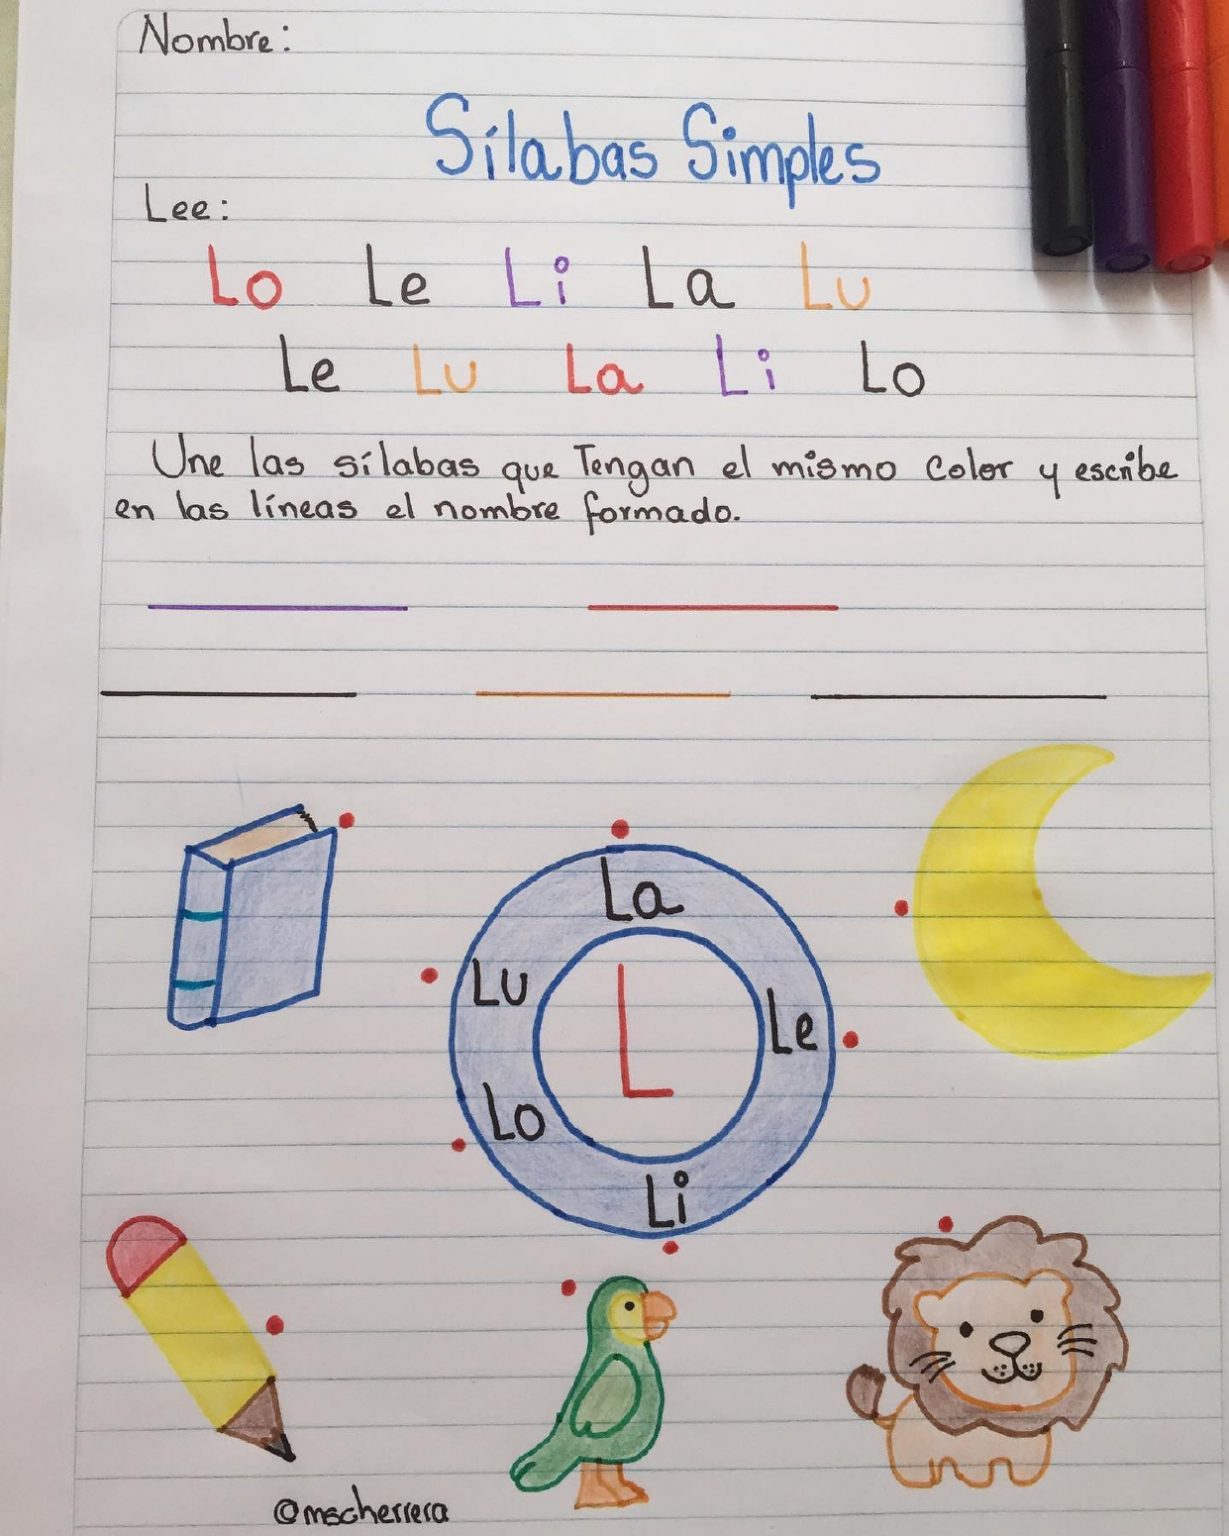 Nombre:
Sílabas Simples
Lee:
Lo Le Li La Lu
Le Lu La Li Lo
Une las sílabas que Tengan el mismo Color y escribe
en las líneas el nombre formado.
La
Lu
L
Le
Lo
Li
@mscherrera